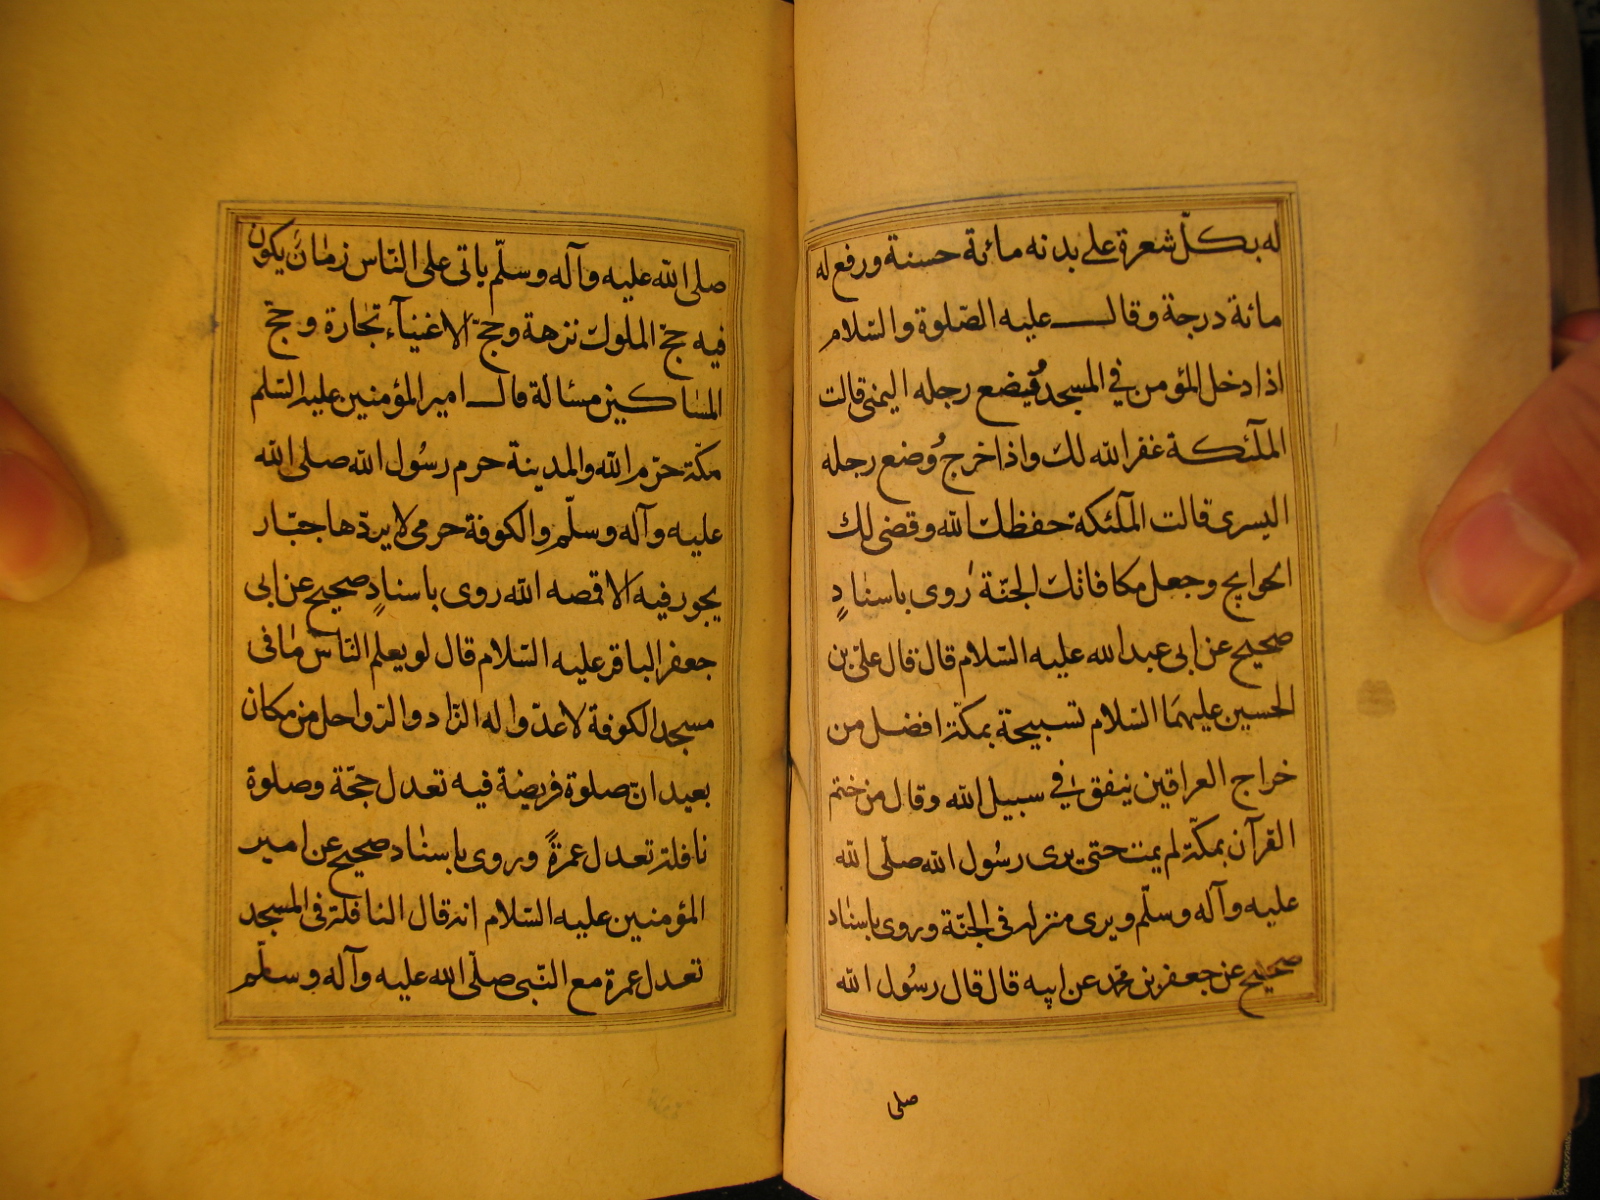 له بكلّ شعرة على بدنه مائة حسنة ورفع له
مائة درجة وقال عليه الصّلوة والسّلام
اذا دخل المؤمن في المسجد فيضع رجله اليمنى قالت
الملٓئكة غفر الله لك واذا خرج وُضع رجله
اليسرى قالت الملٓئكة حفظك الله وقضى لك
الحوايج وجعل مكافاتك الجنّة رُوى باسنادٍ
صحيح عن ابى عبد الله عليه السّلام قال قال علىّ بن
الحسين عليهما السّلام تسبيحة بمكّة افضل من
خراج العراقين ينفق في سبيل الله وقال من ختم
القرآن بمكّة لم يمت حتى يرى رسُول الله صلّى الله
عليه وآله وسلّم ويرى منزله فى الجنّة وروى باسناد
صحيح عن جعفر بن محمّد عن ابيه قال قال رسُول الله
صلى
صلى الله عليه وآله وسلّم ياتى على النّاس زمان يكون
فيه حجّ الملوك نزهة وحجّ الاغنيآء تجارة وحجّ
المساكين مسألة قال امير المؤمنين عليه السّلم
مكّة حرم الله والمدينة حرم رسُول الله صلى الله
عليه وآله وسلّم والكوفة حرمى لا يردّها جبّار
يجور فيه الا قصمه الله روى باسنادٍ صحيح عن ابى
جعفر الباقر عليه السّلام قال لو يعلم النّاس ما فى
مسجد الكوفة لاعدّوا له الزّاد والرّواحل من مكان
بعيد انّ صلوة فريضة فيه تعدل حجّة وصلوة
نافلة تعدل عمرةً وروى باسناد صحيح عن امير
المؤمنين عليه السّلام انه قال النافلة فى المسجد
تعدل عمرة مع النّبى صلّى الله عليه وآله وسلّم